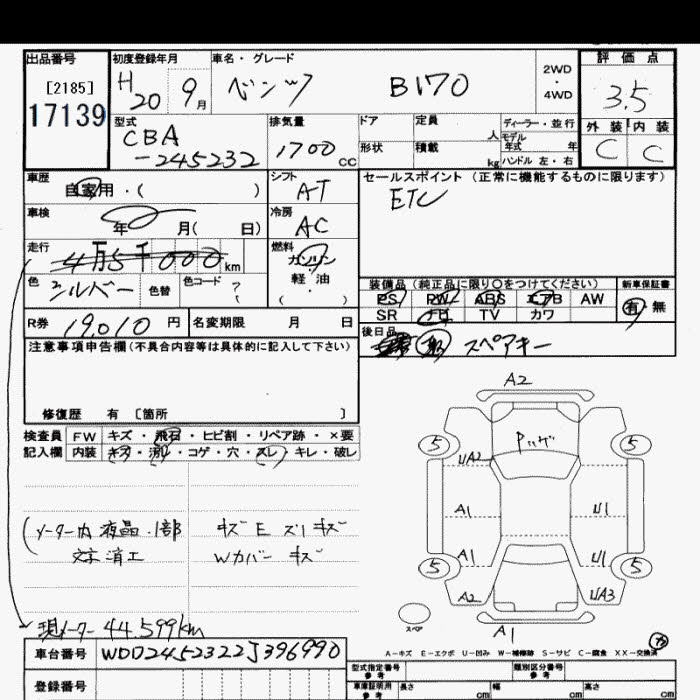 出品番号 初度登録年月 車名・グレード 評価点
[2185] H20 9月 ベンツ B170 2WD・4WD 3.5
17139 型式 CBA-245232 排気量 1700cc ドア 定員 人 ディーラー・並行 外装 内装
形状 積載 kg モデル年式 年 ハンドル 左・右 C C
車歴 自家用・( ) シフト AT セールスポイント (正常に機能するものに限ります)
車検 年 月( 日) 冷房 AC ETC
走行 4万5千000km 燃料 ガソリン 軽油 ( )
色 シルバー 色替 色コード ? 装備品 (純正品に限り○をつけてください) 新車保証書
PS PW ABS エアB AW 有・無
SR ナビ TV カワ
R券 19,010円 名変期限 月 日 後日品 スペアキー
注意事項申告欄(不具合内容等は具体的に記入して下さい)
修復歴 有 〔箇所 〕
検査員記入欄 FW キズ・飛石・ヒビ割・リペア跡・×要
内装 キズ・汚れ・コゲ・穴・スレ・キレ・破レ
メーター内液晶・1部 キズE ズレキズ
文字消エ Wカバーキズ
現メーター 44,599km
A2
Pハゲ
5 5
UA2
A1 U1
A1 U1
5 5
A2 UA3
スペア A1
A-キズ E-エクボ U-凹み W-補修跡 S-サビ C-腐食 XX-交換済
車台番号 WDD2452322J396990
登録番号
型式指定番号 参考 類別区分番号 参考
車庫証明用 参考 長さ cm 幅 cm 高さ cm